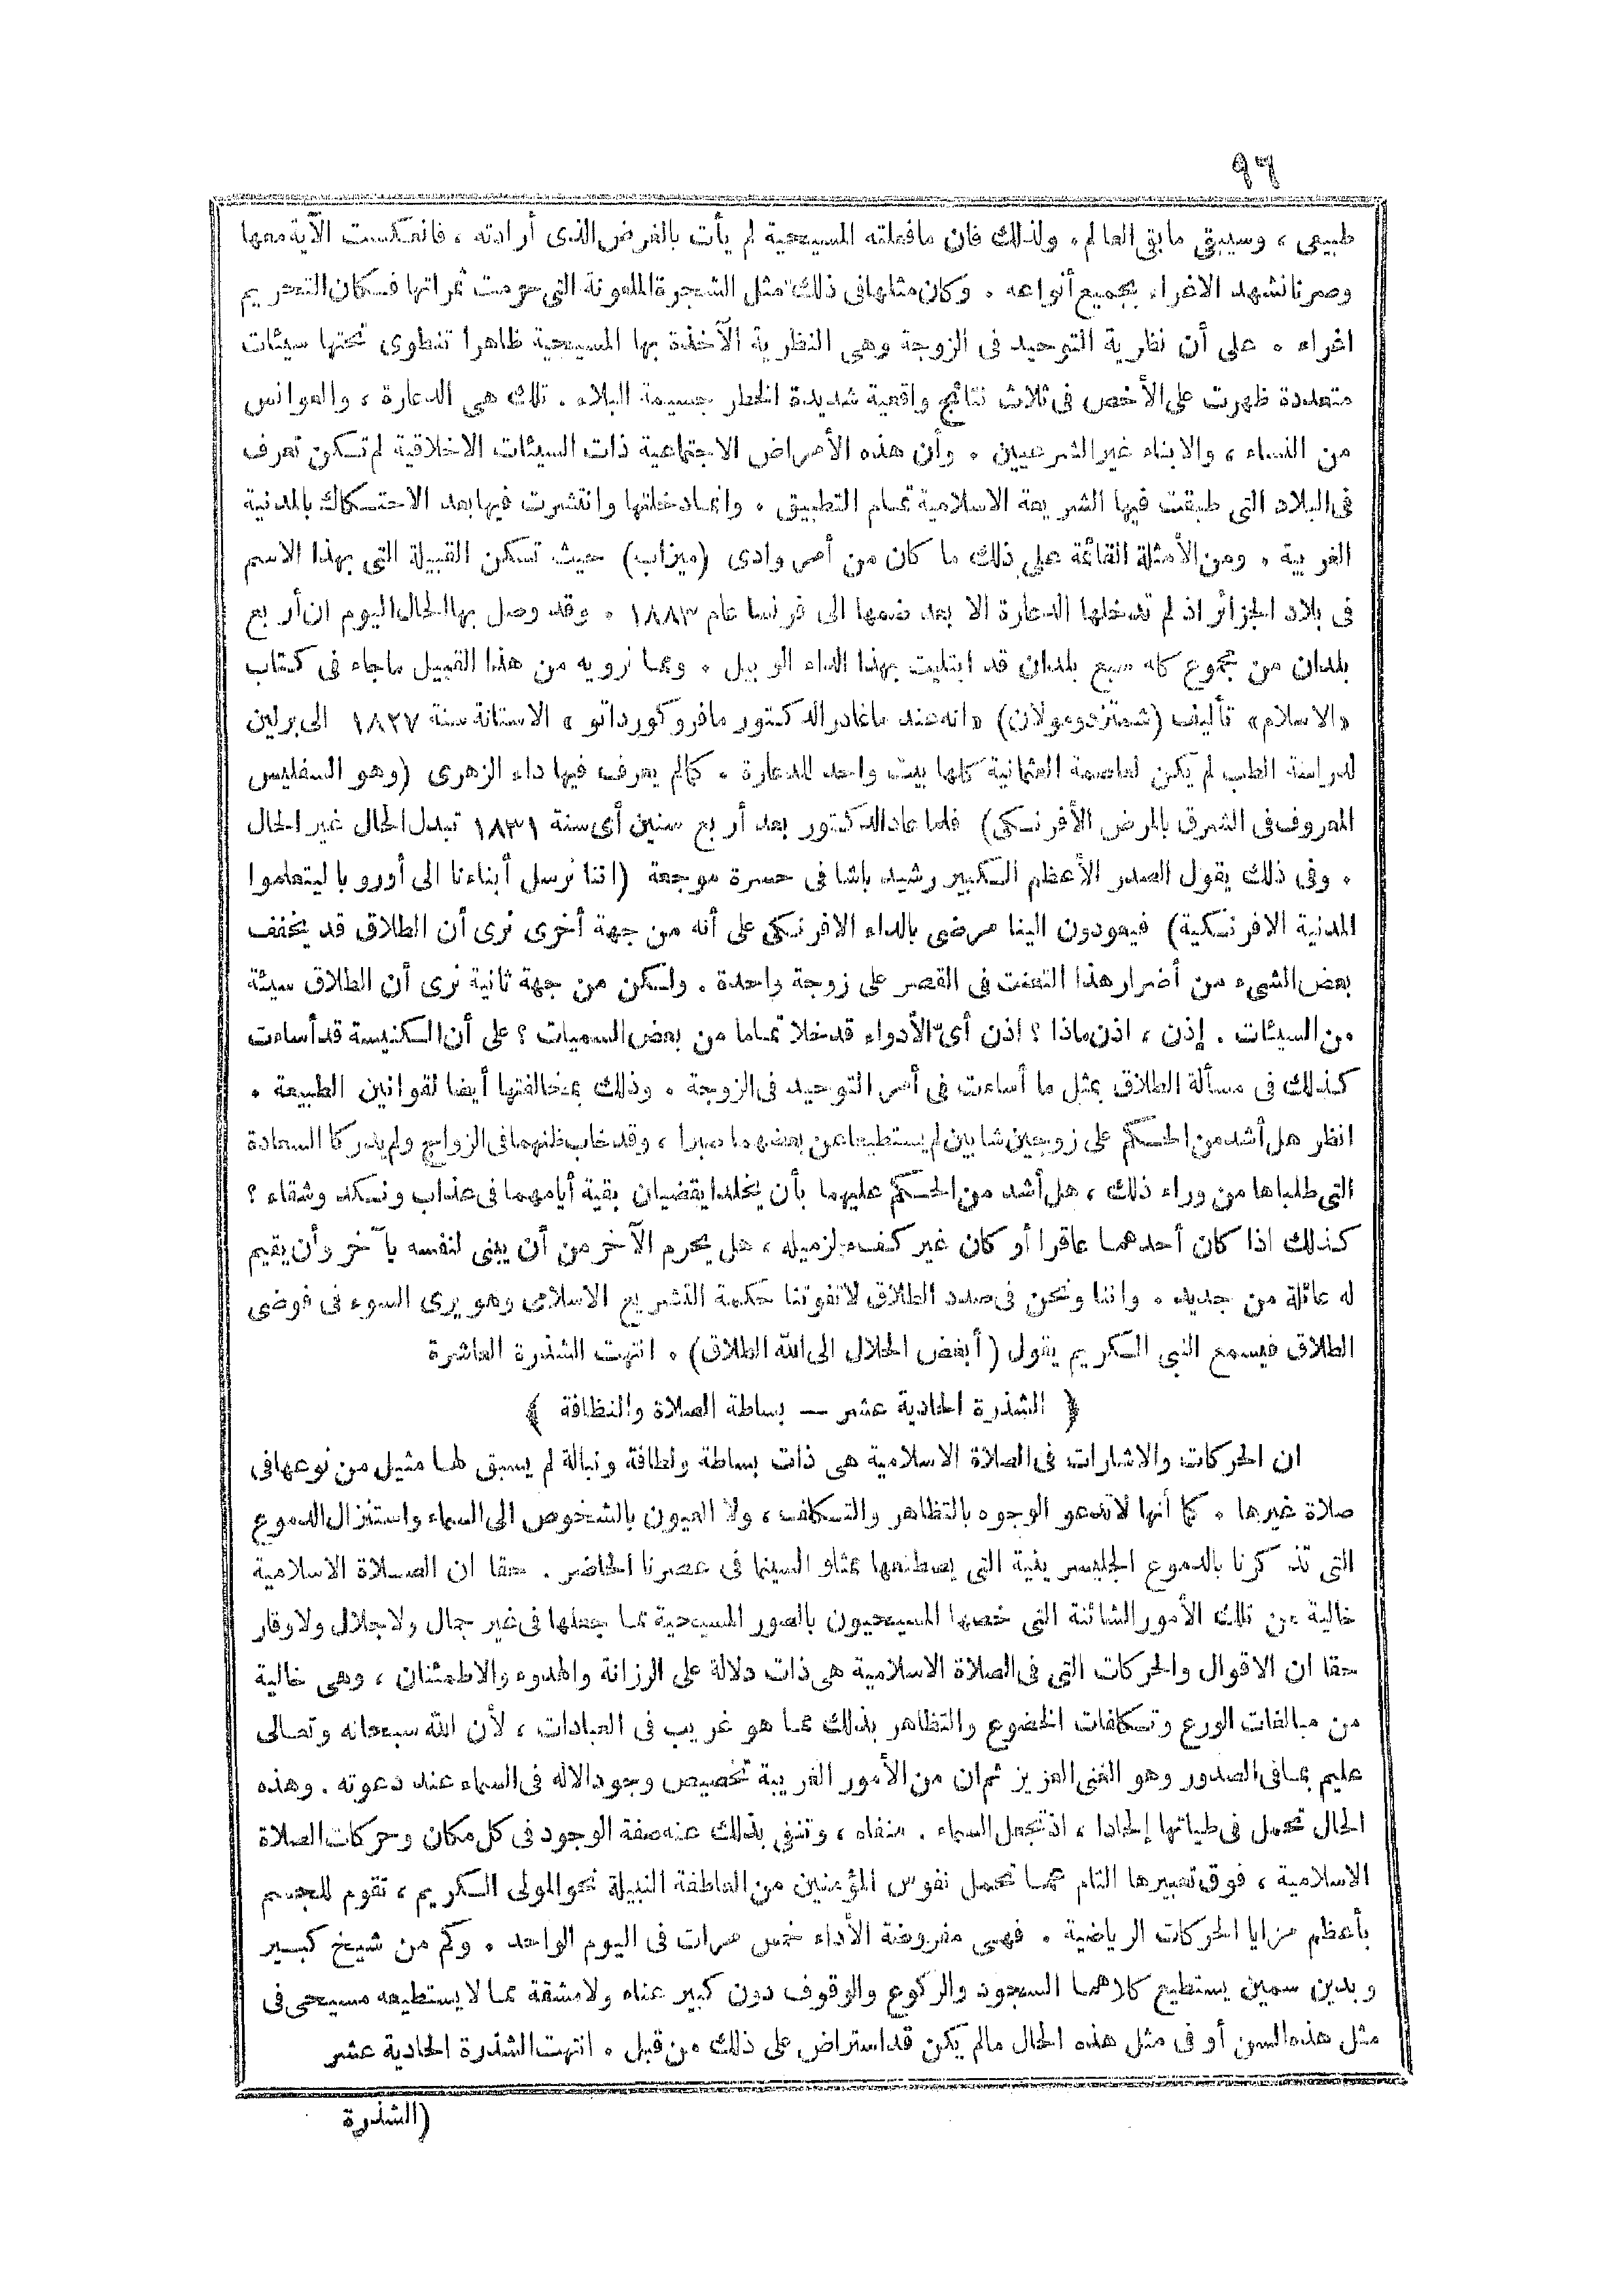 ٩٦
طبيعى ، وسيبقى مابقى العالم . ولذلك فان مافعلته المسيحية لم يأت بالغرض الذى أرادته ، فانعكست الآية معها
وصرنا نشهد الاغراء بجميع أنواعه . وكان مثلها فى ذلك مثل الشجرة الملعونة التى حومت ثمراتها فكان التحريم
اغراء . على أن نظرية التوحيد فى الزوجة وهى النظرية الآخذة بها المسيحية ظاهرا تنطوى تحتها سيئات
متعددة ظهرت على الأخص فى ثلاث نتائج واقعية شديدة الخطر جسيمة البلاء . تلك هى الدعارة ، والعوانس
من النساء ، والابناء غير الشرعيين . وأن هذه الأمراض الاجتماعية ذات السيئات الاخلاقية لم تكن تعرف
فى البلاد التى طبقت فيها الشريعة الاسلامية تمام التطبيق . وانما دخلتها وانتشرت فيها بعد الاحتكاك بالمدنية
الغربية . ومن الأمثلة القائمة على ذلك ما كان من أمر وادى (ميزاب) حيث تسكن القبيلة التى بهذا الاسم
فى بلاد الجزائر اذ لم تدخلها الدعارة الا بعد ضمها الى فرنسا عام ١٨٨٣ . وقد وصل بها الحال اليوم ان أربع
بلدان من مجموع كله سبع بلدان قد ابتليت بهذا الداء الوبيل . ومما نرويه من هذا القبيل ماجاء فى كتاب
«الاسلام» تأليف (شمتزدومولان) «انه عند ماغادر الدكتور مافروكورداتو ، الاستانة سنة ١٨٢٧ الى برلين
لدراسة الطب لم يكن لعاصمة العثمانية كلها بيت واحد للدعارة . كمالم يعرف فيها داء الزهرى (وهو السفليس
المعروف فى الشرق بالمرض الأفرنكى) فلما عاد الدكتور بعد أربع سنين أى سنة ١٨٣١ تبدل الحال غير الحال
. وفى ذلك يقول الصدر الأعظم الكبير رشيد باشا فى حسرة موجعة (اننا نرسل أبناءنا الى أوروبا ليتعلموا
المدنية الافرنكية) فيعودون الينا مرضى بالداء الافرنكى على أنه من جهة أخرى نرى أن الطلاق قد يخفف
بعض الشىء من أضرار هذا التعنت فى القصر على زوجة واحدة . ولكن من جهة ثانية نرى أن الطلاق سيئة
من السيئات . إذن ، اذن ماذا ؟ اذن أىّ الأدواء قد خلا تماما من بعض السميات ؟ على أن الكنيسة قد أساءت
كذلك فى مسألة الطلاق بمثل ما أساءت فى أمر التوحيد فى الزوجة . وذلك بمخالفتها أيضا لقوانين الطبيعة .
انظر هل أشد من الحكم على زوجين شابين لم يستطيعا عن بعضهما صبرا ، وقد خاب ظنهما فى الزواج ولم يدركا السعادة
التى طلباها من وراء ذلك ، هل أشد من الحكم عليهما بأن يخلدا يقضيان بقية أيامهما فى عذاب ونكد وشقاء ؟
كذلك اذا كان أحدهما عاقرا أو كان غير كفء لزميله ، هل يحرم الآخر من أن يبنى لنفسه بآخر وأن يقيم
له عائلة من جديد . واننا ونحن فى صدد الطلاق لاتفوتنا حكمة التشريع الاسلامى وهو يرى السوء فى فوضى
الطلاق فيسمع النبى الكريم يقول (أبغض الحلال الى الله الطلاق) . انتهت الشذرة العاشرة
﴿ الشذرة الحادية عشر — بساطة الصلاة والنظافة ﴾
ان الحركات والاشارات فى الصلاة الاسلامية هى ذات بساطة ولطافة ونبالة لم يسبق لها مثيل من نوعها فى
صلاة غيرها . كما أنها لاتدعو الوجوه بالتظاهر والتكلف ، ولا العيون بالشخوص الى السماء واستنزال الدموع
التى تذكرنا بالدموع الجليسرينية التى يصطنعها ممثلو السينما فى عصرنا الحاضر . حقا ان الصلاة الاسلامية
خالية من تلك الأمور الشائنة التى خصها المسيحيون بالصور المسيحية مما جعلها فى غير جمال ولا جلال ولا وقار
حقا ان الاقوال والحركات التى فى الصلاة الاسلامية هى ذات دلالة على الرزانة والهدوء والاطمئنان ، وهى خالية
من مبالغات الورع وتكلفات الخضوع والتظاهر بذلك مما هو غريب فى العبادات ، لأن الله سبحانه وتعالى
عليم بمافى الصدور وهو الغنى العزيز ثم ان من الأمور الغريبة تخصيص وجود الاله فى السماء عند دعوته . وهذه
الحال تحمل فى طياتها إلحادا ، اذ تجعل السماء . منفاه ، وتنفى بذلك عنه صفة الوجود فى كل مكان وحركات الصلاة
الاسلامية ، فوق تعبيرها التام عما تحمل نفوس المؤمنين من العاطفة النبيلة نحو المولى الكريم ، تقوم للجسم
بأعظم مزايا الحركات الرياضية . فهى مفروضة الأداء خمس مرات فى اليوم الواحد . وكم من شيخ كبير
وبدين سمين يستطيع كلاهما السجود والركوع والوقوف دون كبير عناء ولامشقة مما لا يستطيعه مسيحى فى
مثل هذه السن أو فى مثل هذه الحال مالم يكن قد استراض على ذلك من قبل . انتهت الشذرة الحادية عشر
(الشذرة